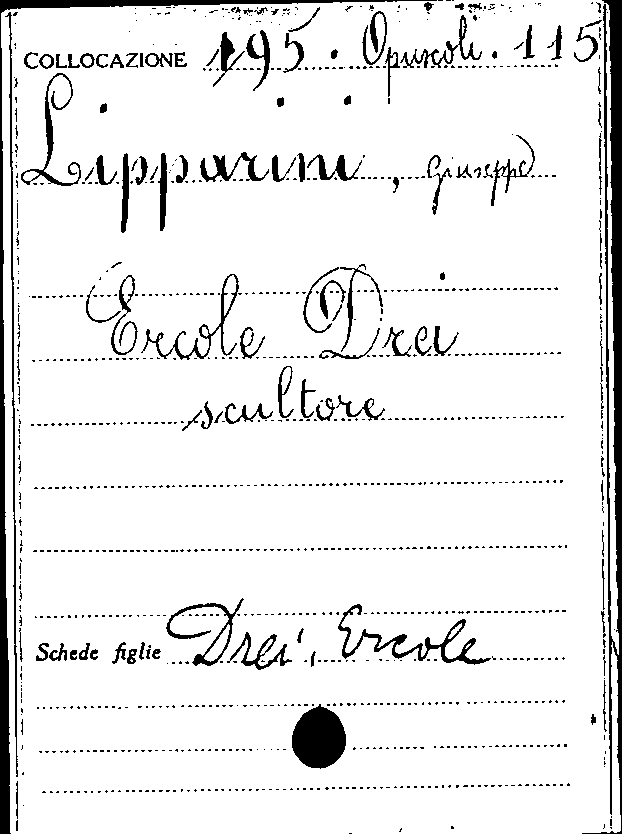 COLLOCAZIONE 195. Opuscoli. 115
Lipparini, Giuseppe
Ercole Drei
scultore
Schede figlie Drei, Ercole